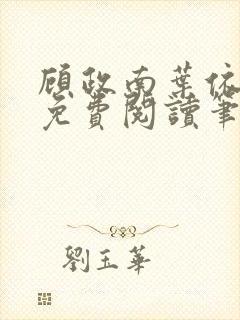 顾政南葉依
免費閱讀筆
劉玉華